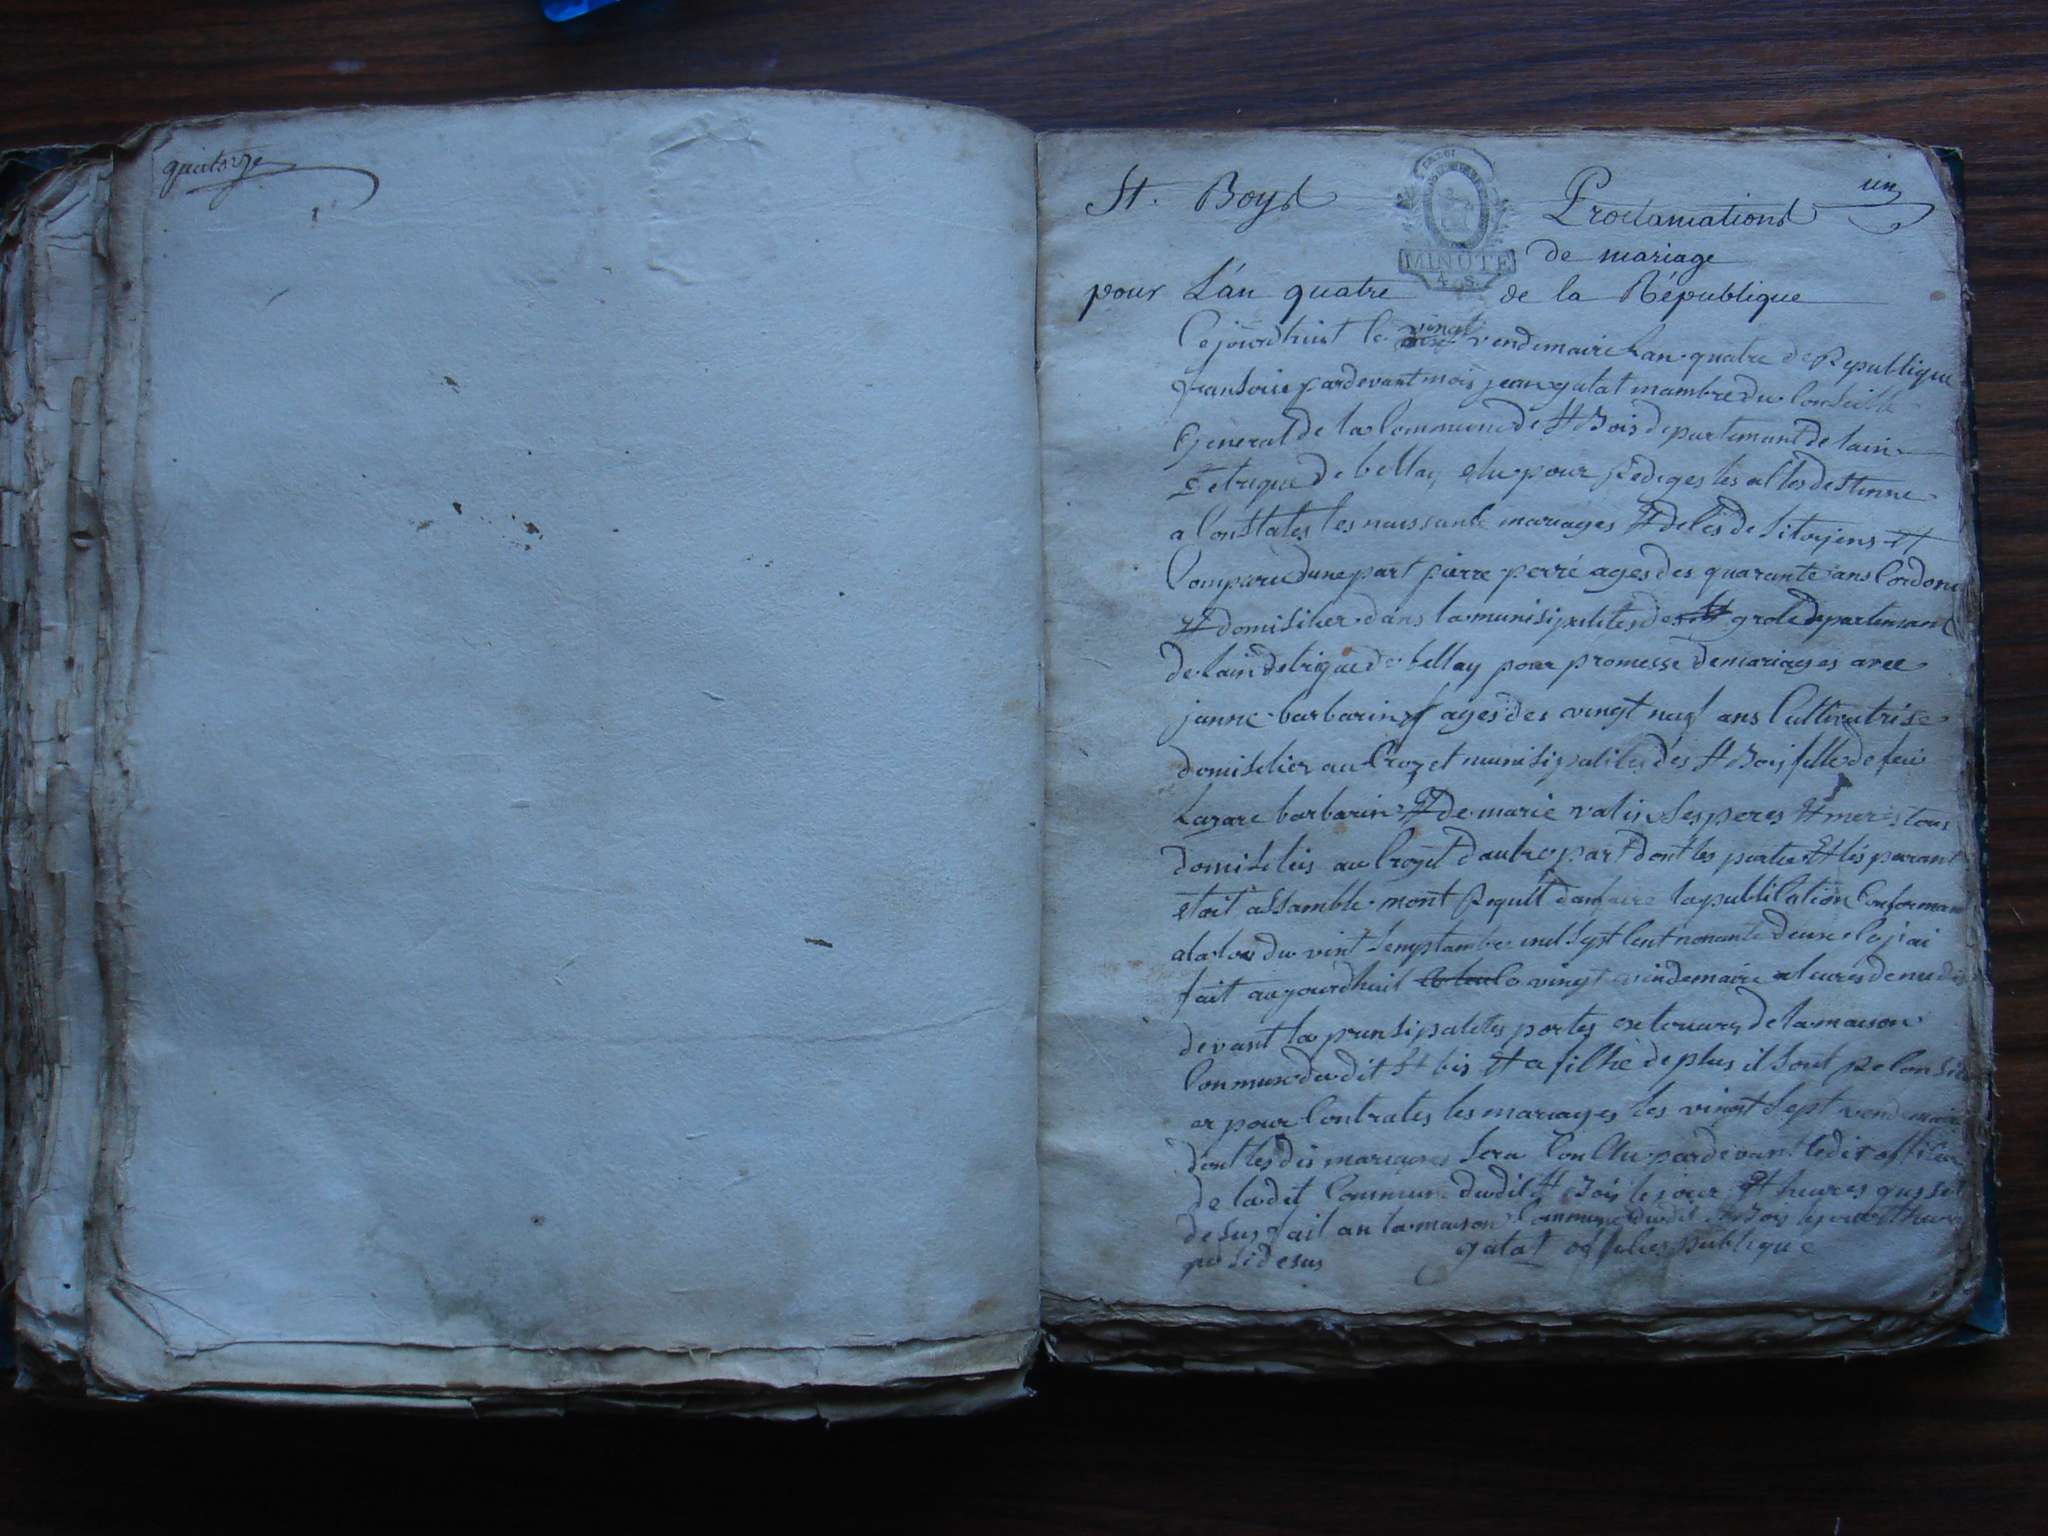 quatorze
St. Boys
Proclamations
un
MINUTE
4. S.
de mariage
pour L'an quatre de la République
Cejourdhuit le vingt vendemaire Lan quatre de Republique
fransoise pardevant mois jean gatat mambre du Conseille
General de la Commune de St Bois departemant de lain
detrique de bellay elu pour Rediges les actes destinne
a Constates les naissanse mariages et deses de sitoyens et
Comparu dune part pierre perré ages des quarante ans Cordone
et domisilier dans la munisipalites des grole departemant
de lain detrique de bellay pour promesse de mariages avec
janne barbarin ages des vingt neuf ans Cultivatrise
domisilier au Crozet munisipalites des St Bois fille de feu
Lazare barbarin et de marie valin ses peres et meres tous
domisilies au Crozet dautre part dont les partie et les parant
etoit assamble mont Requit dan faire la publication Conformam
a la loi du vint semptambre mil sept Cent nonante deuxe la jai
fait aujourdhuit vingt vindemaire a leures de medis
devant la prinsipalites portes exterures de la maison
Commune dudit St bis et a filhe de plus il sont
er pour Contrates les mariages les vingt sept vendemair
dont les dis mariages sera Conclu pardevant ledit officier
de ladit Commune dudit St Bois le jour et heures que si
desus fait an la maison Commune dudit St Bois
que si desus gatat offisies publique